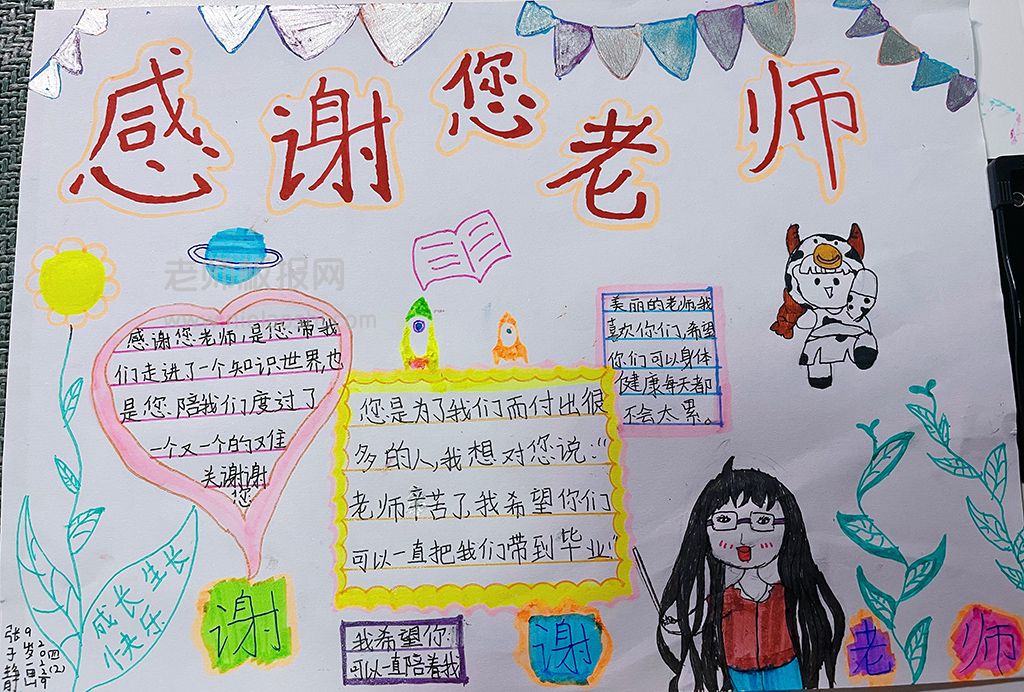 感谢您老师
老师板报网
感谢您老师,是您带我
们走进了一个知识世界,也
是您陪我们度过了
一个又一个的难
关谢谢
您
美丽的老师,我
喜欢你们,希望
你们可以身体
健康每天都
不会太累。
您是为了我们而付出很
多的人,我想对您说:“
老师辛苦了,我希望你们
可以一直把我们带到毕业”
成长生长
快乐
谢
谢
老
师
我希望你
可以一直陪着我
张子静
9岁画
四(2)